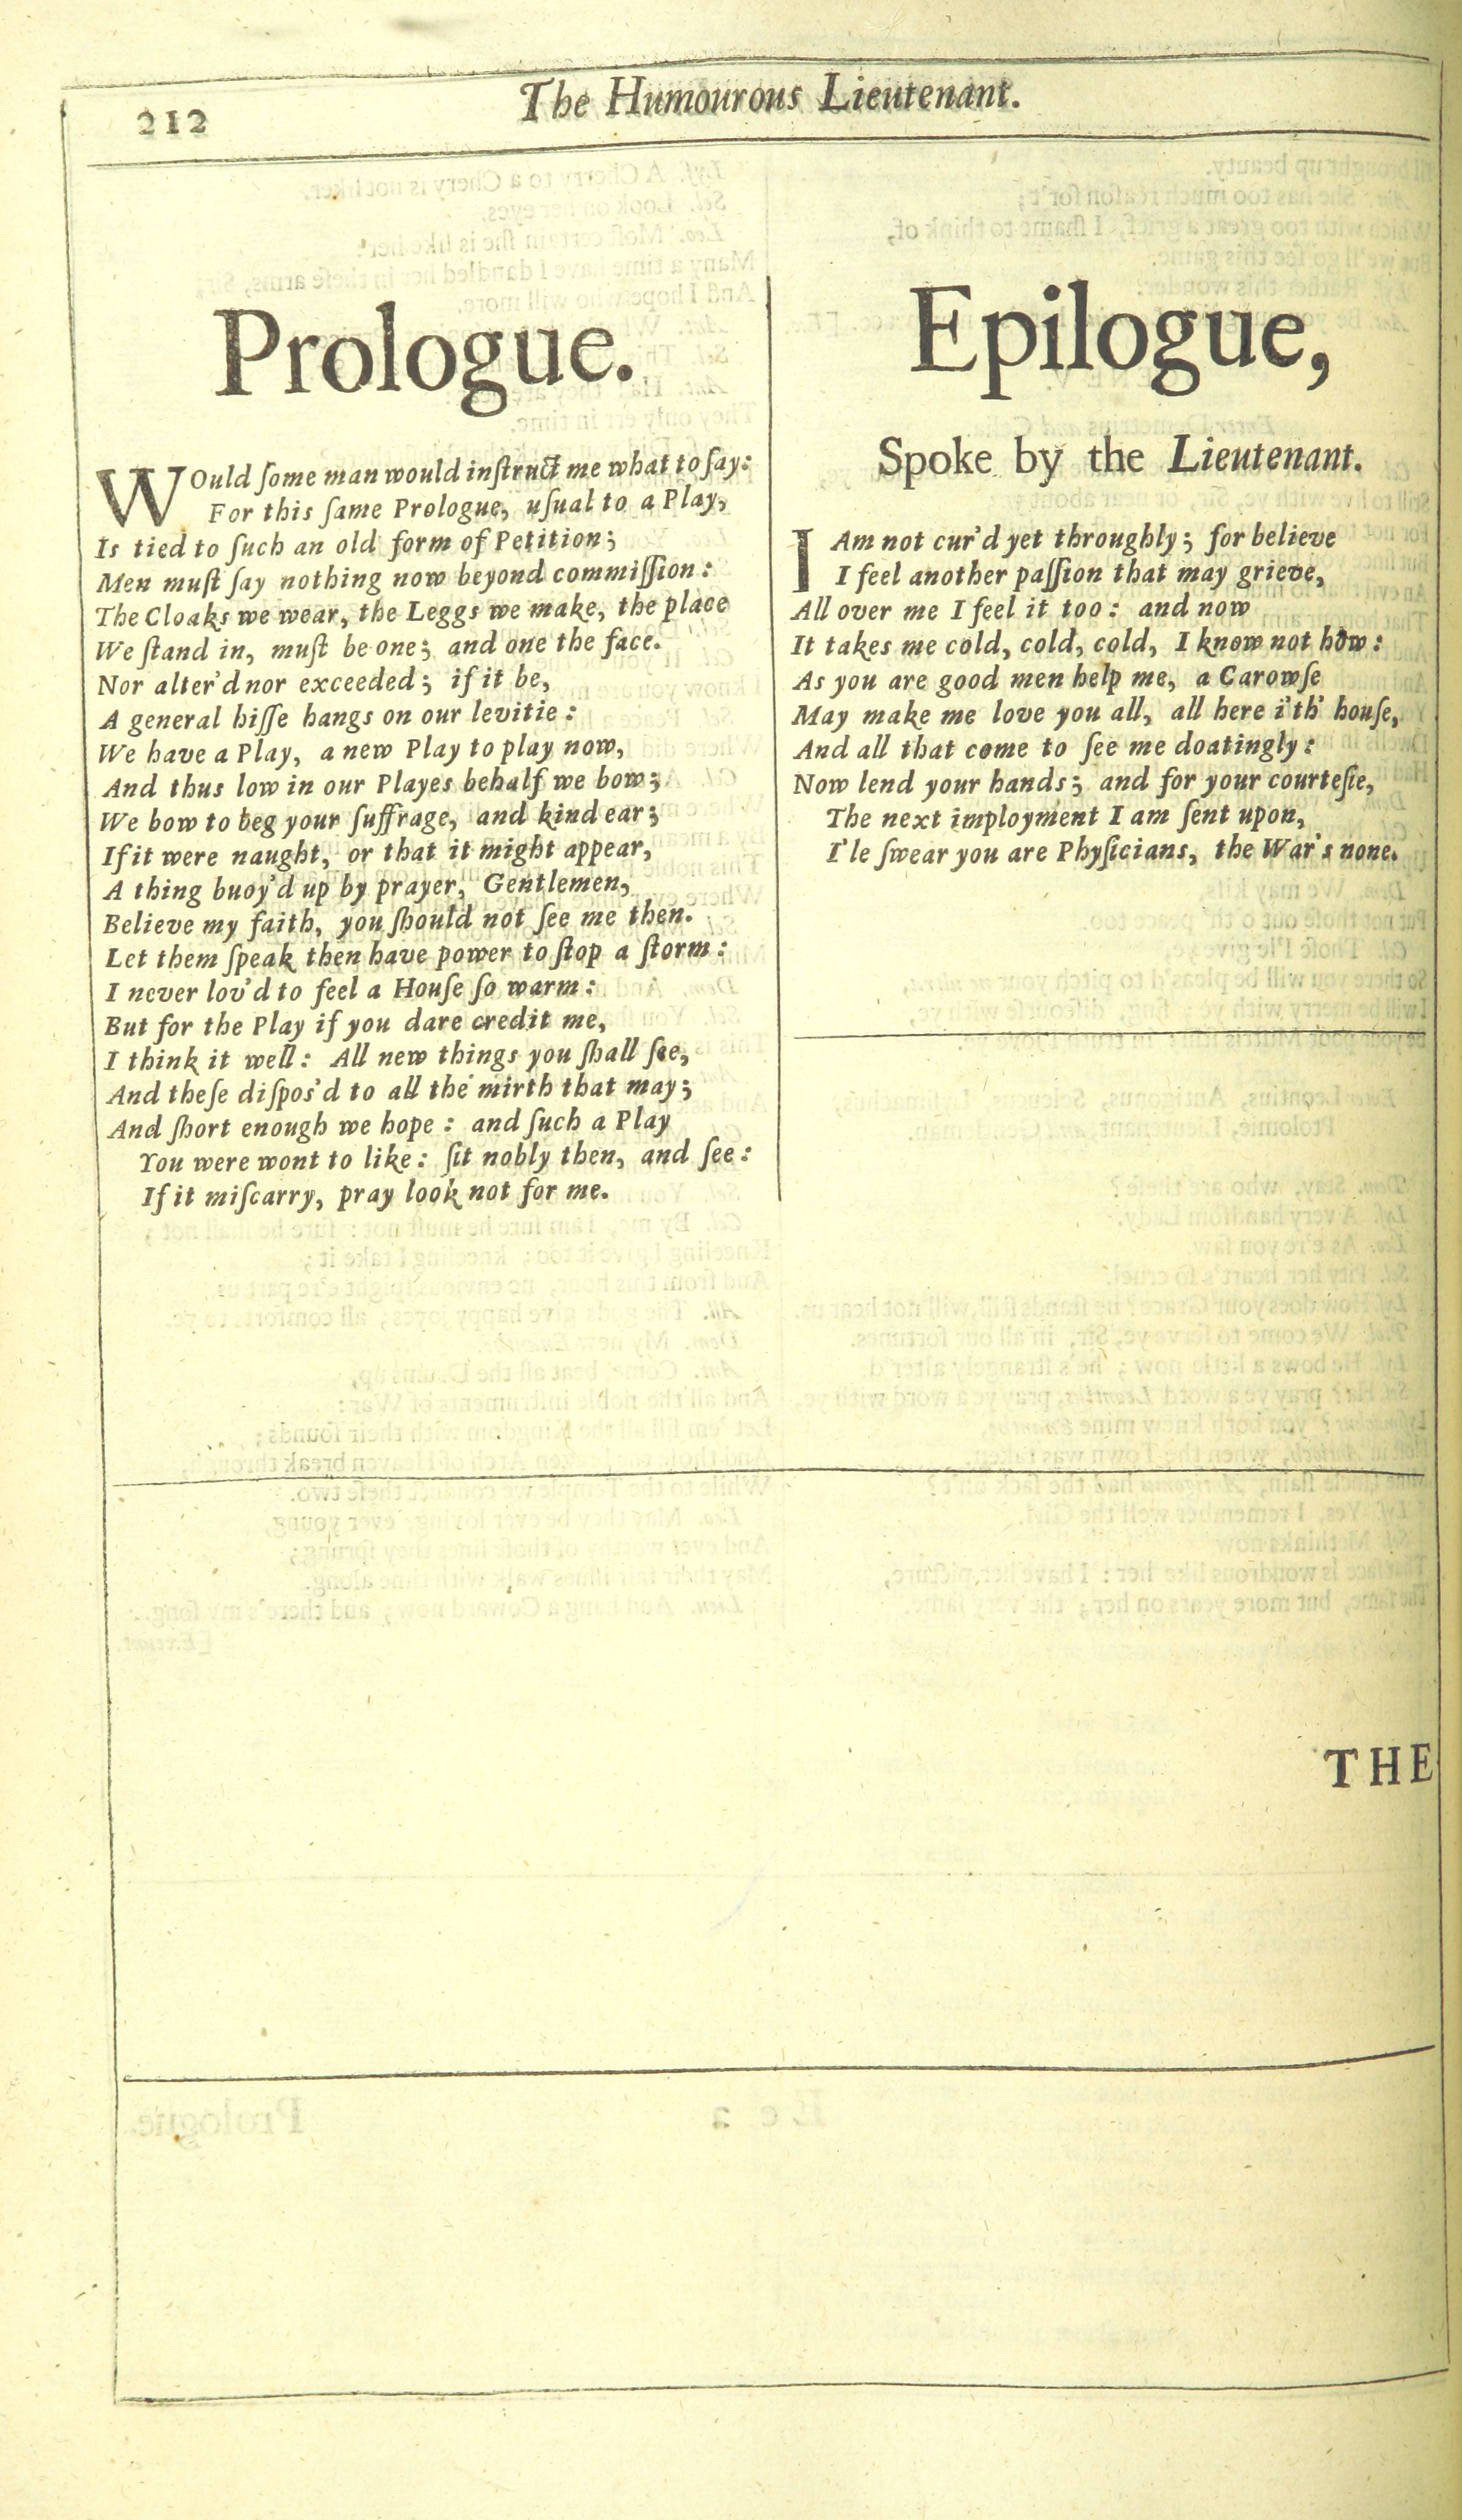 212
The Humourous Lieutenant.
Prologue.
WOuld ſome man would inſtruct me what to ſay:
For this ſame Prologue, uſual to a Play,
Is tied to ſuch an old form of Petition;
Men muſt ſay nothing now beyond commiſſion:
The Cloaks we wear, the Leggs we make, the place
We ſtand in, muſt be one; and one the face.
Nor alter'd nor exceeded; if it be,
A general hiſſe hangs on our levitie:
We have a Play, a new Play to play now,
And thus low in our Playes behalf we bow;
We bow to beg your ſuffrage, and kind ear;
If it were naught, or that it might appear,
A thing buoy'd up by prayer, Gentlemen,
Believe my faith, you ſhould not ſee me then.
Let them ſpeak then have power to ſtop a ſtorm:
I never lov'd to feel a Houſe ſo warm:
But for the Play if you dare credit me,
I think it well: All new things you ſhall ſee,
And theſe diſpos'd to all the mirth that may;
And ſhort enough we hope: and ſuch a Play
You were wont to like: ſit nobly then, and ſee:
If it miſcarry, pray look not for me.
Epilogue,
Spoke by the Lieutenant.
I Am not cur'd yet throughly; for believe
I feel another paſſion that may grieve,
All over me I feel it too: and now
It takes me cold, cold, cold, I know not how:
As you are good men help me, a Carowſe
May make me love you all, all here i'th' houſe,
And all that come to ſee me doatingly:
Now lend your hands; and for your courteſie,
The next imployment I am ſent upon,
I'le ſwear you are Phyſicians, the War's none.
THE